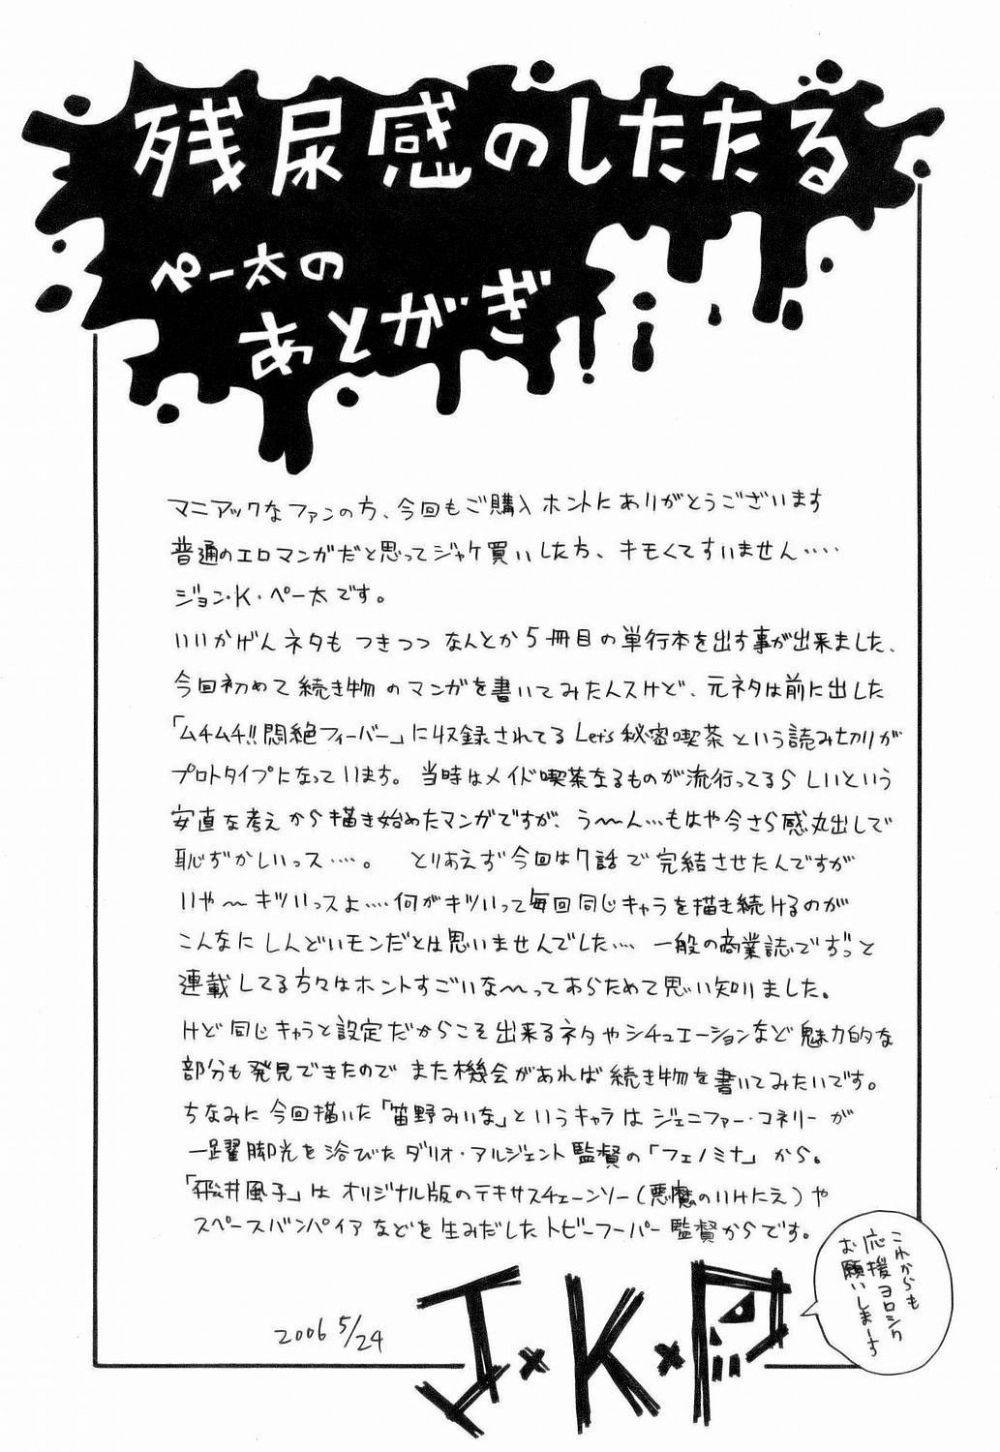 残尿感のしたたる
ペー太の
あとがき
マニアックなファンの方、今回もご購入ホントにありがとうございます
普通のエロマンガだと思ってジャケ買いした方、キモくてすいません・・・・
ジョン・K・ペー太です。
いいかげんネタもつきつつなんとか5冊目の単行本を出す事が出来ました、
今回初めて続き物のマンガを書いてみたんスけど、元ネタは前に出した
「ムチムチ!!悶絶フィーバー」に収録されてるLet's秘密喫茶という読み切りが
プロトタイプになっています。当時はメイド喫茶なるものが流行ってるらしいという
安直な考えから描き始めたマンガですが、う〜ん・・・もはや今さら感丸出しで
恥ずかしいっス・・・・。 とりあえず今回は7話で完結させたんですが
いや〜キツいっスよ・・・・何がキツいって毎回同じキャラを描き続けるのが
こんなにしんどいモンだとは思いませんでした・・・・ 一般の商業誌でずっと
連載してる方々はホントすごいな〜ってあらためて思い知りました。
けど同じキャラと設定だからこそ出来るネタやシチュエーションなど魅力的な
部分も発見できたのでまた機会があれば続き物を書いてみたいです。
ちなみに今回描いた「笛野みいな」というキャラはジェニファー・コネリーが
一躍脚光を浴びたダリオ・アルジェント監督の「フェノミナ」から。
「飛井風子」はオリジナル版のテキサスチェーンソー(悪魔のいけにえ)や
スペースバンパイアなどを生みだしたトビーフーパー監督からです。
これからも
応援ヨロシク
お願いしまーす
2006 5/24
J×K×P